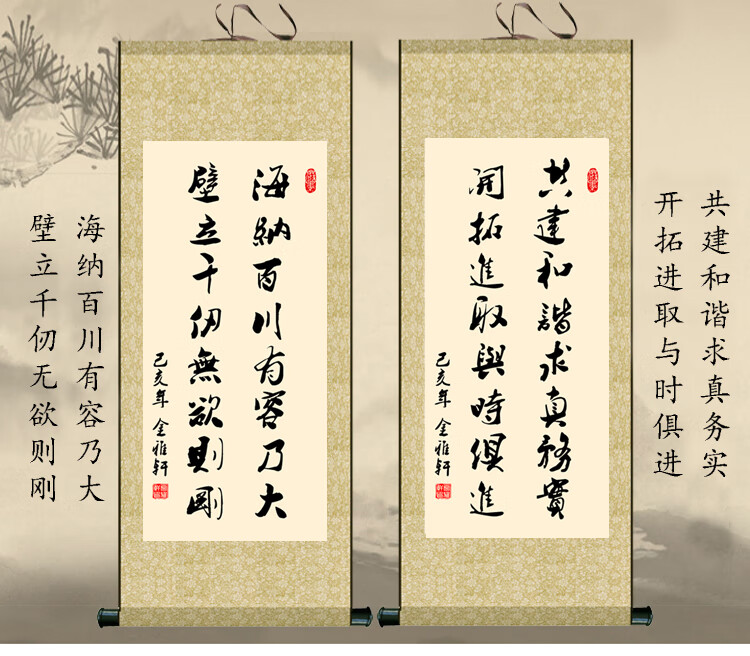 共建和谐求真务实
开拓进取与时俱进
共建和諧求真務實
開拓進取與時俱進
己亥年 金雅轩
海納百川有容乃大
壁立千仞無欲則剛
己亥年 金雅轩
海纳百川有容乃大
壁立千仞无欲则刚